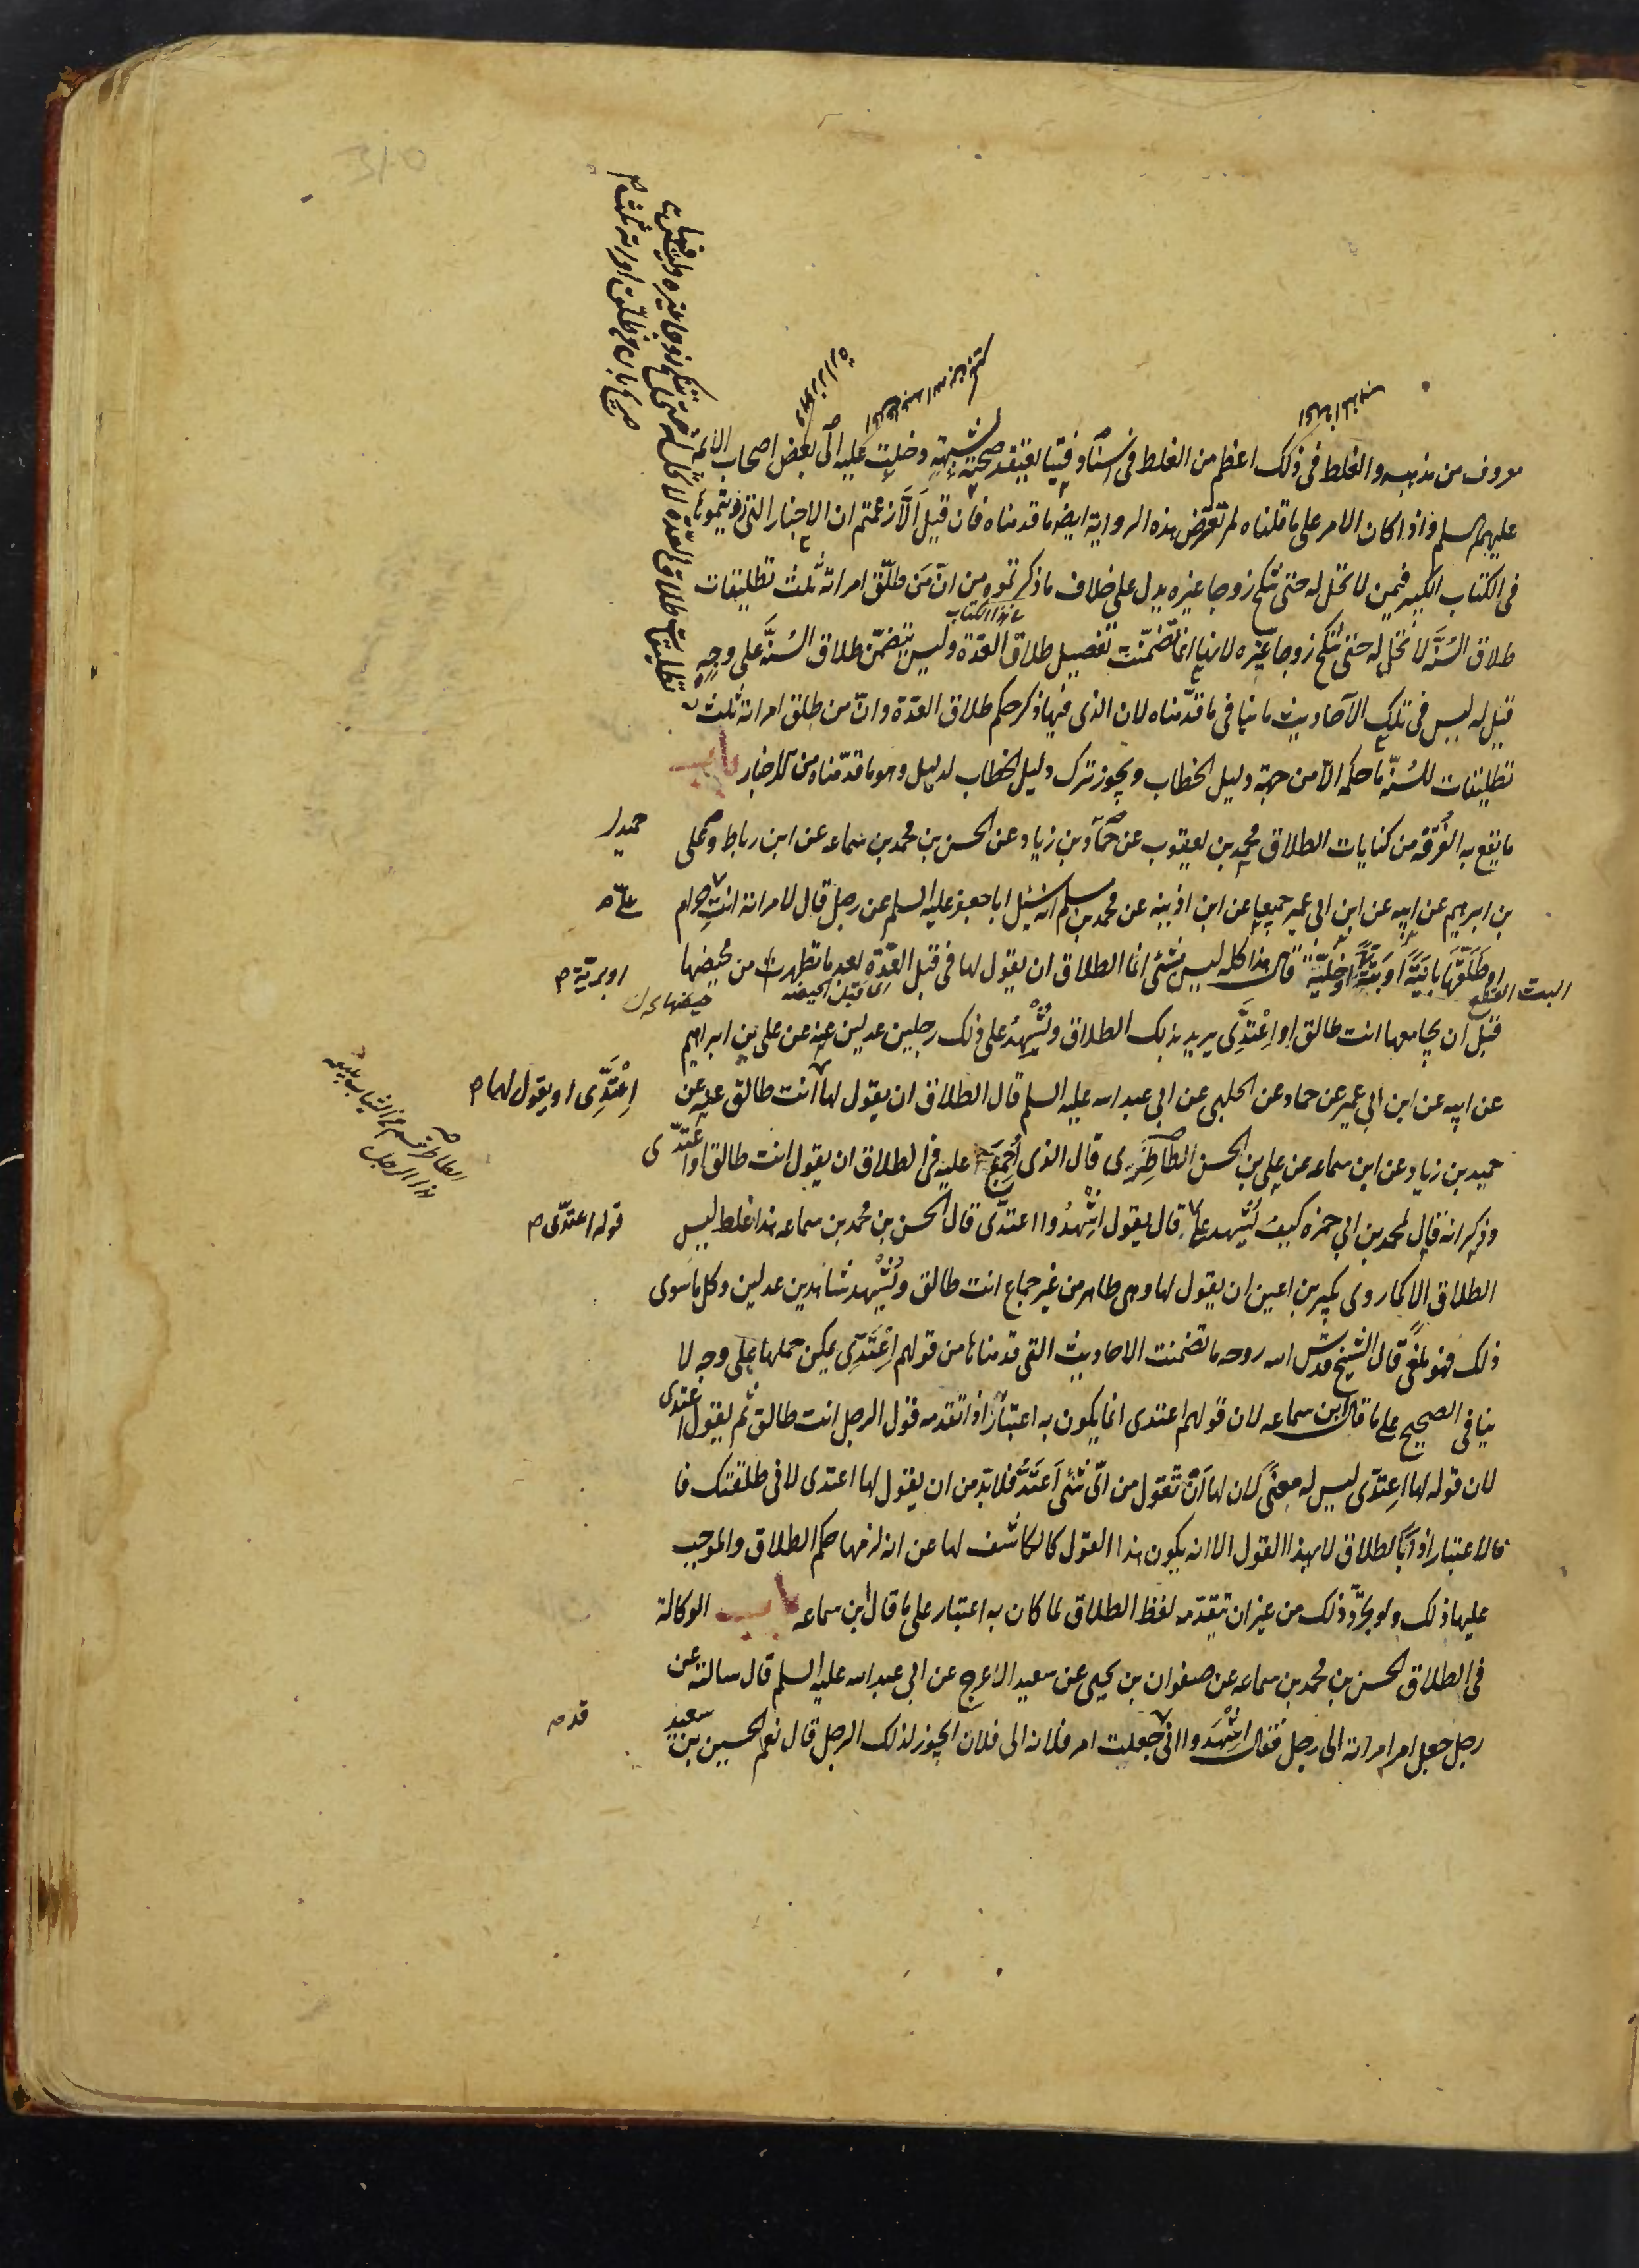 معروف من مذهبه والغلط فى ذلك اعظم من الغلط فى اسناد فتيا يعتقد صحته لشبهة دخلت عليه الى بعض اصحاب الائمة
عليهم السلم واذا كان الامر على ما قلناه لم تعترض هذه الرواية ايضا ما قدمناه فان قيل الّا زعمتم ان الاخبار التى رويتموها
فى الكتاب الكبير فيمن لا تحل له حتى تنكح زوجا غيره يدل على خلاف ما ذكرتموه من انّ مَن طلّق امراته ثلث تطليقات
طلاق السُنَّة لا تحل له حتى تنكح زوجا غيره لانها انما تضمّنت تفصيل طلاق العدّة وليس يتضمّن طلاق السنَّة على وجه
فى هذا الكتاب
قيل له ليس فى تلك الاحاديث ما ينافى ما قدّمناه لان الذى فيها ذكر حكم طلاق العدّة وانّ من طلق امراته ثلث
تطليقات للسُنّة ما حكمه الّا من جهة دليل الخطاب ويجوز ترك دليل الخطاب لدليل وهو ما قدّمناه من الاخبار باب
ما يقع به الفُرقة من كنايات الطلاق محمد بن يعقوب عن حمّاد بن زياد عن الحسن بن محمد بن سماعه عن ابن رباط وعلى
حميد
بن ابرهيم عن ابيه عن ابن ابى عمير جميعا عن ابن اذينه عن محمد بن مسلم انه سئل ابا جعفر عليه السلم عن رجل قال لامراته انت حرام
او طلّقها باينة او بتّة او خليّة قال هذا كله ليس بشئ انما الطلاق ان يقول لها فى قبل العدّة بعد ما تطهرت من محيضها
البت القطع
او بريّة م
اى قبل الحيضه
حيضها
قبل ان يجامعها انت طالق او اعْتدِّى يريد بذلك الطلاق ويُشْهِدُ على ذلك رجلين عدلين عنه عن على بن ابراهيم
عن ابيه عن ابن ابى عمير عن حماد عن الحلبى عن ابى عبد الله عليه السلم قال الطلاق ان يقول لها انت طالق عنه عن
اِعْتَدِّى او يقول لها م
حميد بن زياد عن ابن سماعه عن على بن الحسن الطاطرى قال الذى اُجمِعَ عليه فى الطلاق ان يقول انت طالق او اعتدّى
وذكر انه قال لمحمد بن ابى حمزه كيف يُشهد على قال يقول اشْهدُوا اعتدّى قال الحسن بن محمد بن سماعه هذا غلط ليس
قوله اعتدّى م
الطلاق الا كما روى بكير بن اعين ان يقول لها وهى طاهر من غير جماع انت طالق ويُشْهِد شاهدين عدلين وكل ما سوى
ذلك فهو ملغى قال الشيخ قدّس الله روحه ما تضمنت الاحاديث التى قدمناها من قولهم اِعْتَدِّى يمكن حملها على وجه لا
ينافى الصحيح على ما قال ابن سماعه لان قولهم اعتدى انما يكون به اعتبار اذا تقدمه قول الرجل انت طالق ثم يقول اعتدى
لان قوله لها اعتدّى ليس له معنىً لان لها انْ تقول من اىّ شئ اَعتَدُّ فلابد من ان يقول لها اعتدى لانى طلقتك فا
فالاعتبار اذاً بالطلاق لا بهذا القول الا انه يكون هذا القول كالكاشف لها عن انه لزمها حكم الطلاق والموجب
عليها ذلك ولو تجرّد ذلك من غير ان يتقدّمه لفظ الطلاق لما كان به اعتبار على ما قال ابن سماعه باب الوكالة
فى الطلاق الحسن بن محمد بن سماعه عن صفوان بن يحيى عن سعيد الاعرج عن ابى عبد الله عليه السلم قال سالته عن
رجل جعل امر امراته الى رجل فقال اشْهَدوا انى جعلت امر فلانه الى فلان ايجوز لذلك الرجل قال نعم الحسين بن سعيد
قد م